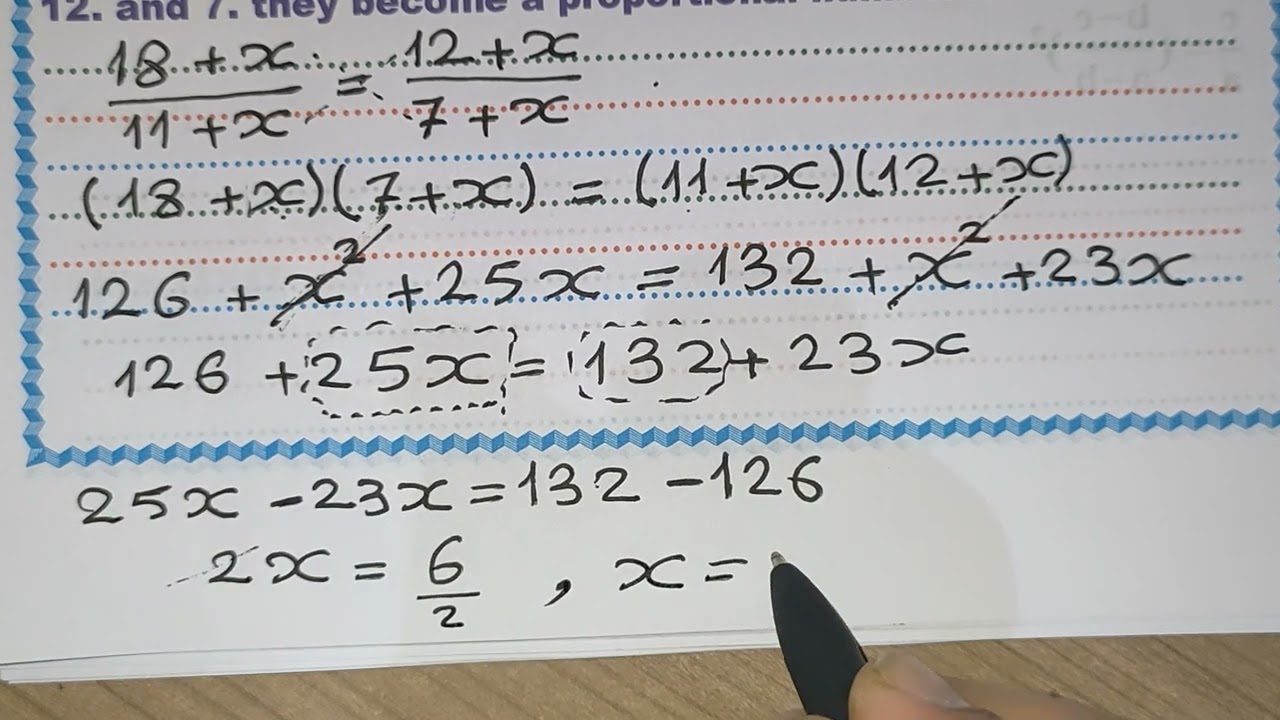 12. and 7. they become a proportional
18 + x / 11 + x = 12 + x / 7 + x
(18 + x)(7 + x) = (11 + x)(12 + x)
126 + x² + 25x = 132 + x² + 23x
126 + 25x = 132 + 23x
25x - 23x = 132 - 126
2x = 6/2 , x =